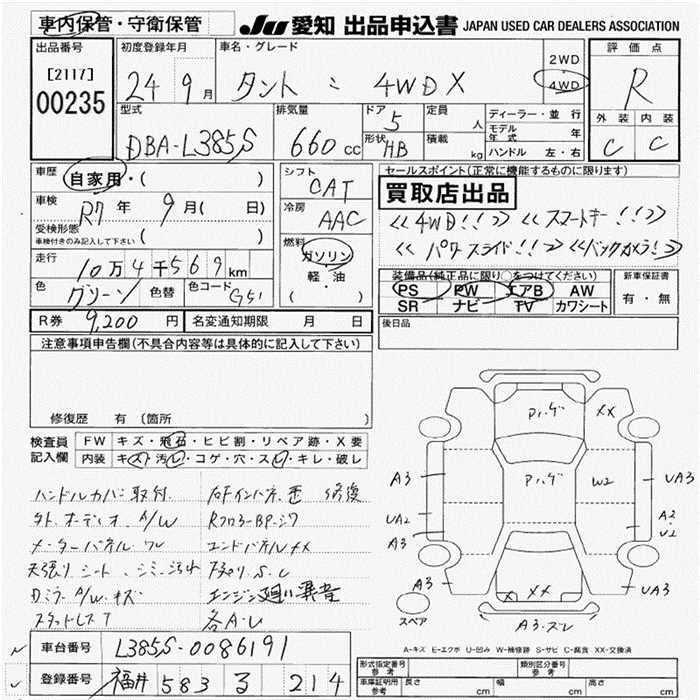 車内保管・守衛保管 JU 愛知 出品申込書 JAPAN USED CAR DEALERS ASSOCIATION
出品番号 初度登録年月 車名・グレード 評価点
[2117] 24 9月 タント : 4WD X 2WD 4WD R
00235
型式 排気量 ドア 定員 ディーラー・並行 外装 内装
DBA-L385S 660cc 5 人 モデル年式 年 C C
形状 HB 積載 kg ハンドル 左・右
車歴 自家用・( ) シフト CAT セールスポイント(正常に機能するものに限ります)
買取店出品
車検 R7年 9月( 日) 冷房 AAC <<4WD!!>> <<スマートキー!!>>
受検形態 ( )
車検付きのみ記入して下さい
燃料 ガソリン <<パワースライド!!>> <<バックカメラ!!>>
走行 10万4千569km 軽・油
装備品(純正品に限り○をつけてください) 新車保証書
色 グリーン 色替 色コード G51 ( ) PS PW エアB AW 有・無
SR ナビ TV カワシート
R券 9,200円 名変通知期限 月 日 後日品
注意事項申告欄(不具合内容等は具体的に記入して下さい)
修復歴 有 (箇所 )
検査員記入欄 FW キズ・飛石・ヒビ割・リペア跡・X要
内装 キズ・汚レ・コゲ・穴・スレ・キレ・破レ
ハンドルカバー取付.
社外オーディオ A/W
メーターパネル ワレ
天張り シート、シミ、汚れ
エンジン廻り異音
各A・U
Pバゲ XX
Pバゲ W2
A3 UA3
UA2 A2
A3 U2
A3 XX UA3
スペア A3・スレ
A-キズ E-エクボ U-凹み W-補修跡 S-サビ C-腐食 XX-交換済
車台番号 L385S-0086191
登録番号 福井 583 る 214
形式指定番号 参考 類別区分番号 参考
車庫証明用 参考 長さ cm 幅 cm 高さ cm